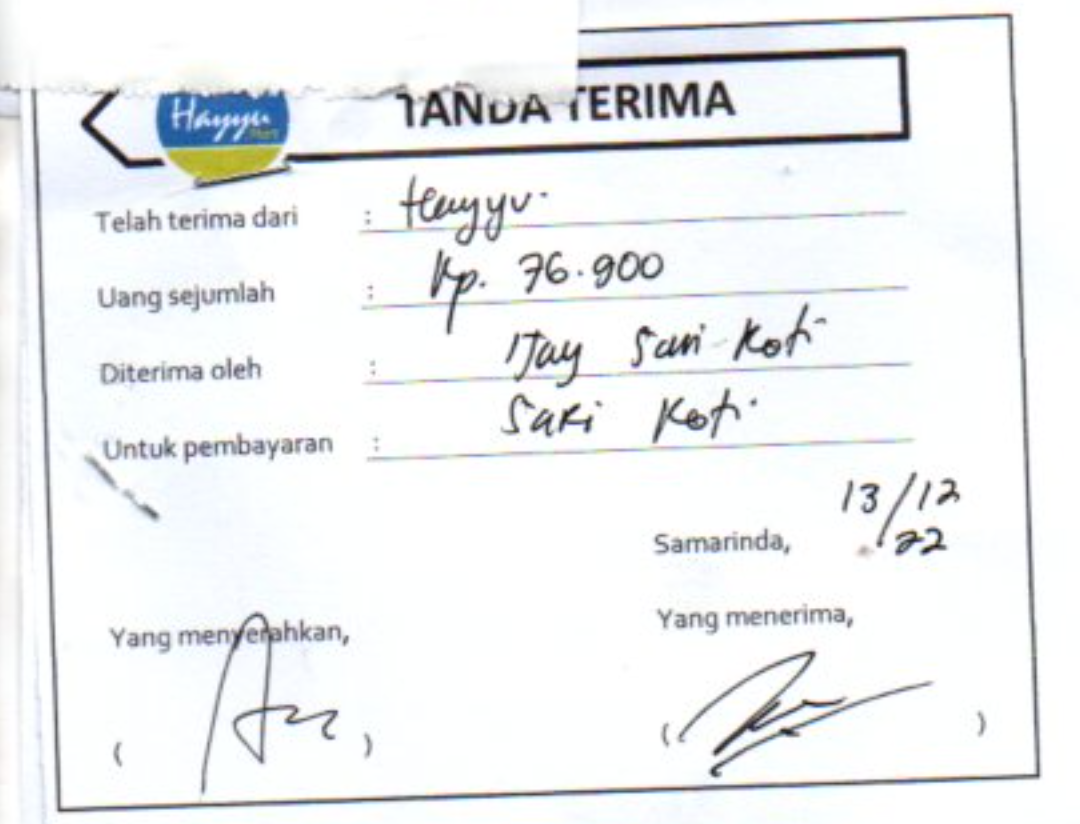 Hayyu
Mart
TANDA TERIMA
Telah terima dari : Hayyu.
Uang sejumlah : Rp. 76.900
Diterima oleh : Sari Roti
Untuk pembayaran : Sari Roti.
13/12
Samarinda, 22
Yang menyerahkan, Yang menerima,
( ) ( )